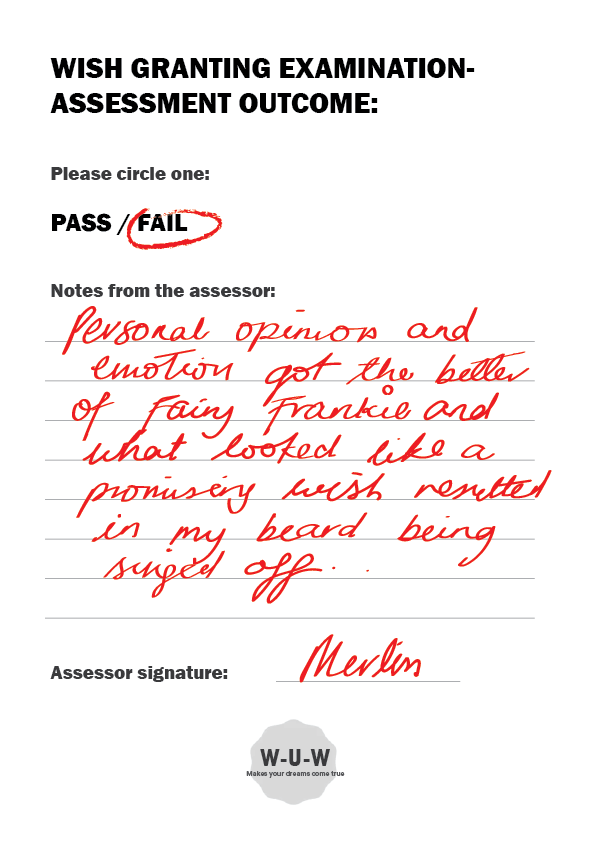 WISH GRANTING EXAMINATION-
ASSESSMENT OUTCOME:
Please circle one:
PASS / FAIL
Notes from the assessor:
Personal opinion and
emotion got the better
of Fairy Frankie and
what looked like a
promising wish resulted
in my beard being
singed off...
Assessor signature:
Merlin
W-U-W
Makes your dreams come true